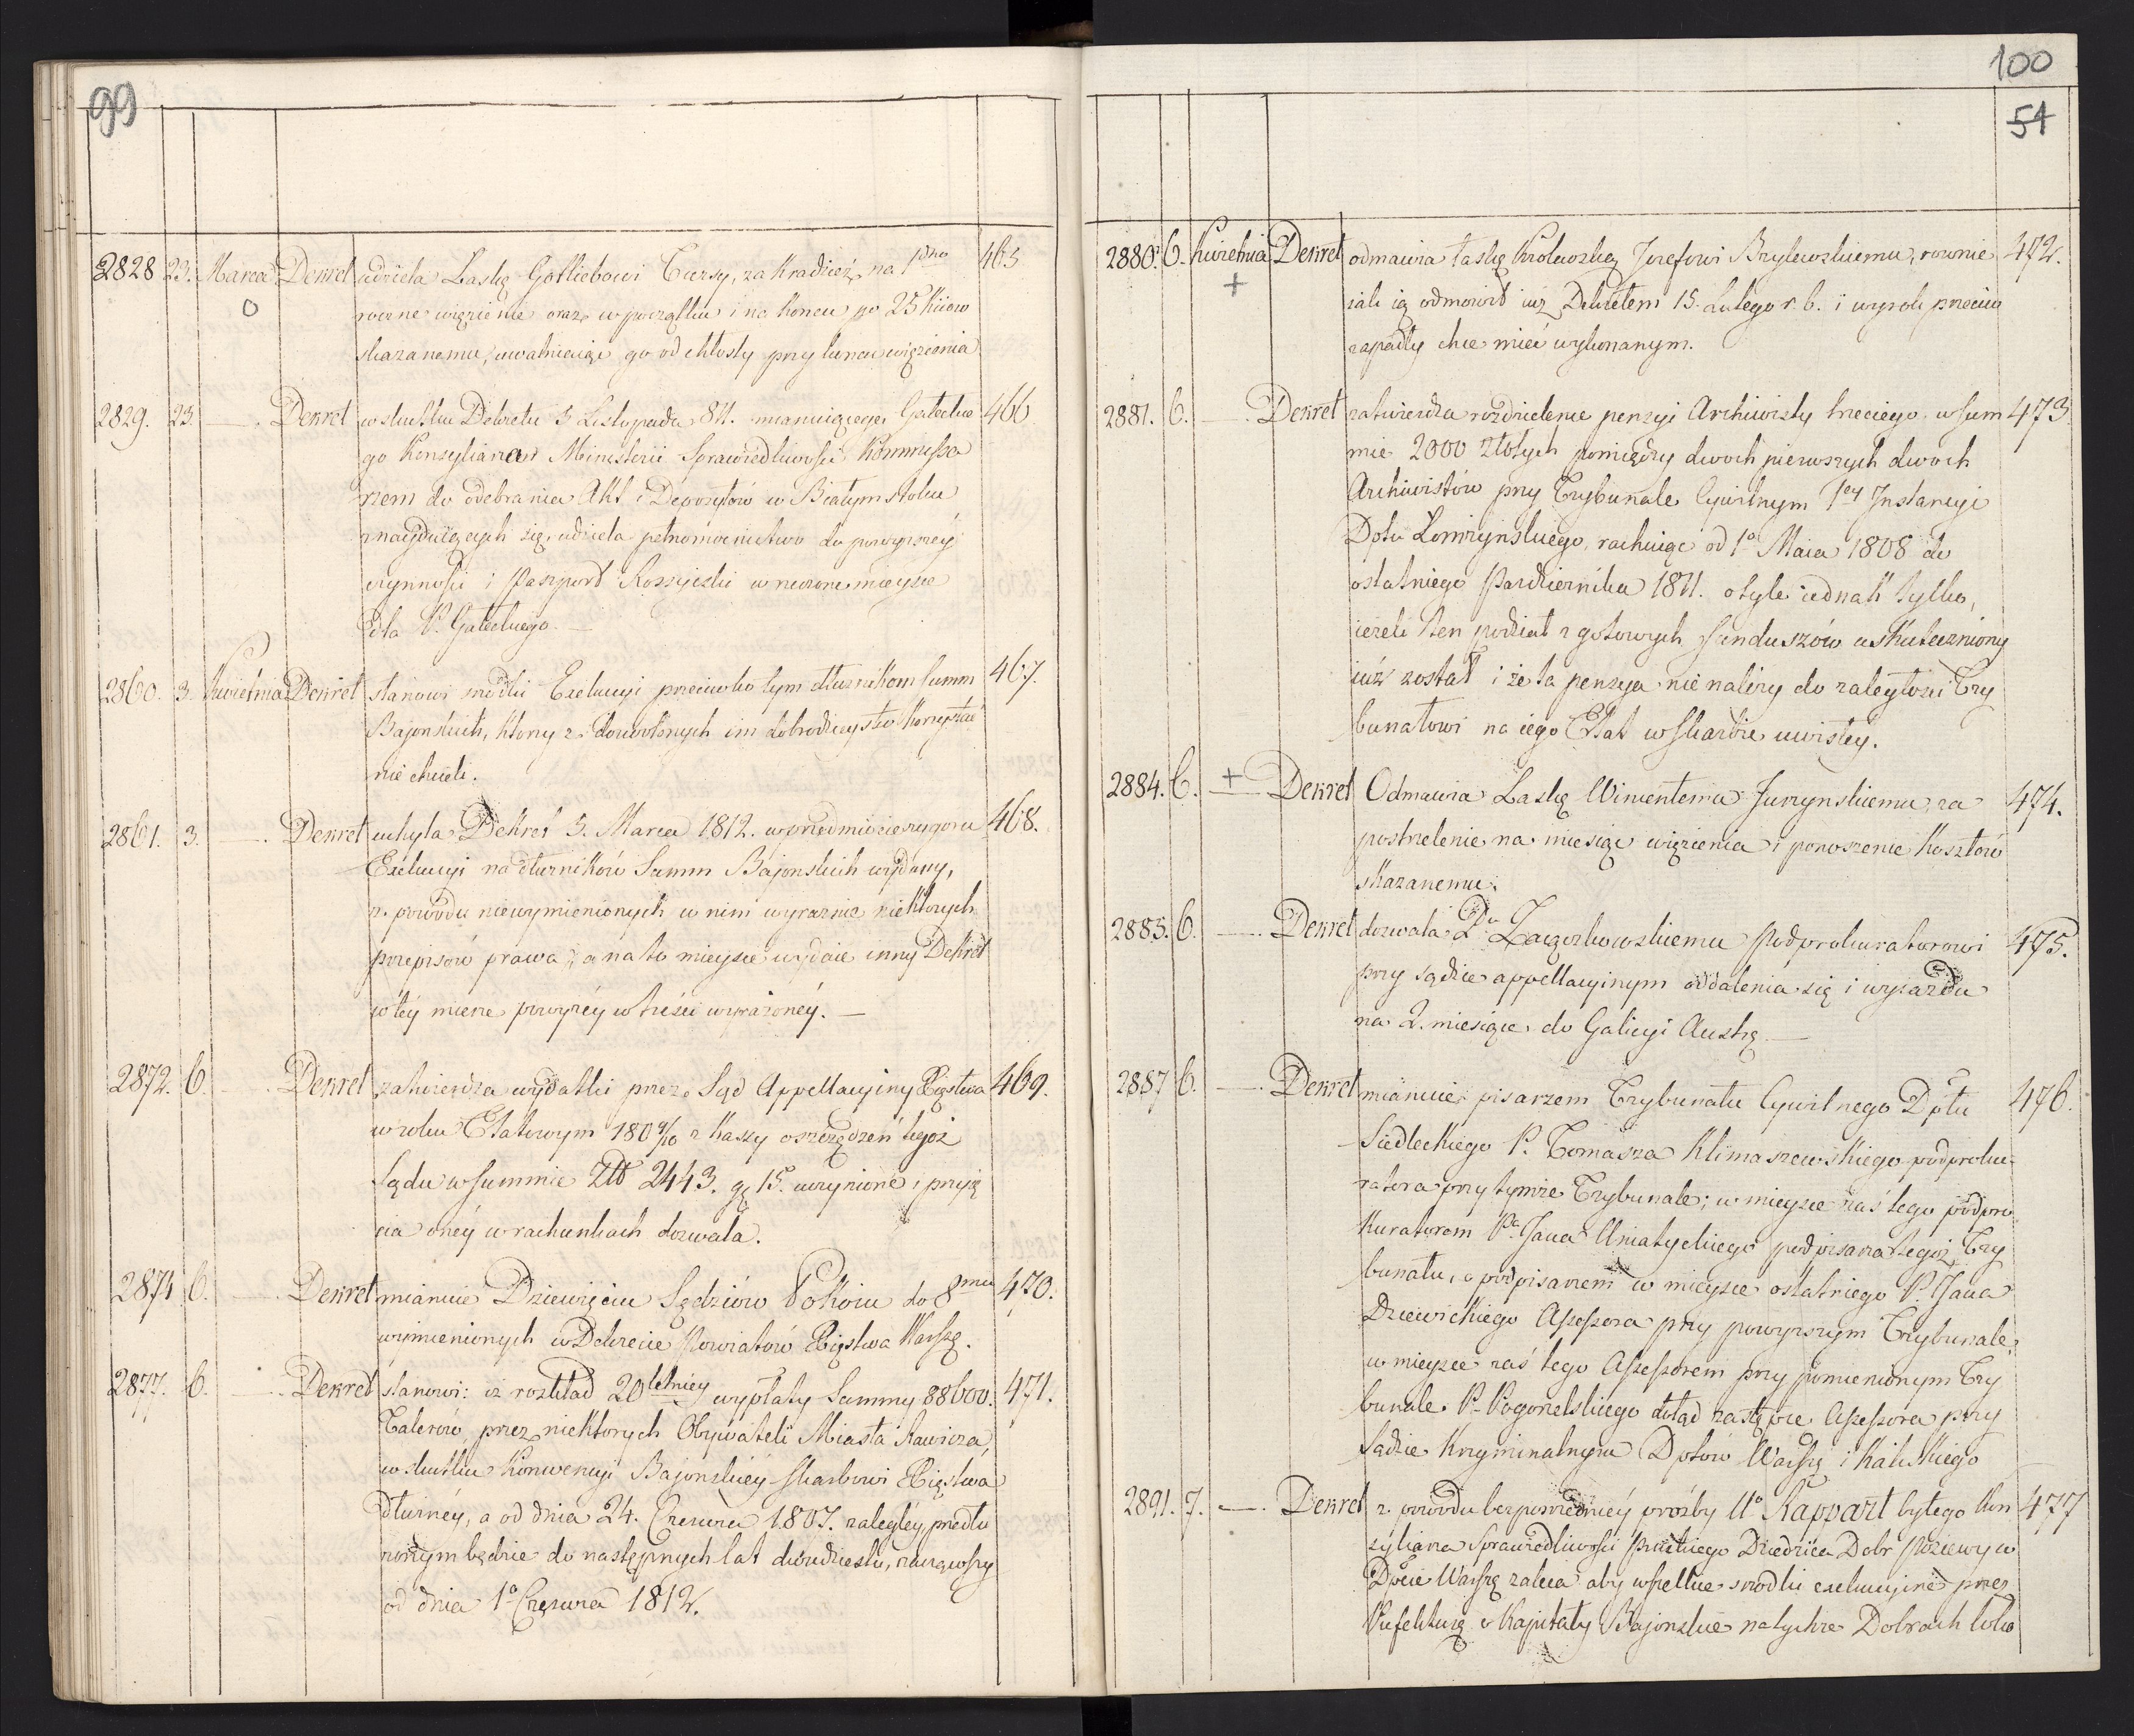 99
2828 23. Marca Dekret udziela Łaskę Gottliebowi Cursy, za Kradzież na 1no 465
O roczne więzienie oraz w początku i na Koncu po 25 Kiiow
skazanemu, uwalniaiąc go od chłosty przy koncu więzienia
2829. 23. —. Dekret w skutku Dekretu 3 Listopada 811. mianuiącego Gałeckie 466
go Konsyliarza Ministerii Sprawiedliwości Kommissa
rzem do odebrania Akt i Depozytów w Białymstoku
znayduiących się, udziela pełnomocnictwo do powyższéy
czynności i Paszport Rossyiski w rzeczone mieysce
dla P. Gałeckiego. —
2860. 3. Kwietnia Dekret stanowi srodki Exekucyi przeciwko tym dłuznikom Summ 467.
Bajonskich, którzy z dozwolonych im dobrodzieystw korzystać
nie chcieli.
2861. 3. —. Dekret uchyla Dekret 3. Marca 1812. w przedmiocie rygoru 468.
Exekucyi na dłuzników Summ Bajonskich wydany,
z powodu niewymienionych w nim wyraznie niektorych
przepisów prawa, a na to mieysce wydaie inny Dekret
w téy mierze powyżéy w treści wyrażonéy. —
2872. 6. . Dekret zatwierdza wydatki przez Sąd Appellacyiny Xięstwa 469.
w roku Etatowym 1809/10 z Kassy oszczędzeń tegoż
Sądu w Summie Złt 2443. gr 15. uczynione i przyię
cia onéy w rachunkach dozwala.
2874 6. —. Dekret mianuie Dziewięciu Sędziów Pokoiu do 8miu 470.
wymienionych w Dekrecie Powiatów Xięstwa Warszę.
2877. 6. —. Dekret stanowi: iż rozkład 20letniey wypłaty Summy 88600. 471.
Talerów, przez niektorych Obywateli Miasta Rawicza,
w skutku Konwencyi Bajońskiéy Skarbowi Xięstwa
dłużnéy, a od dnia 24. Czerwca 1807. zaległéy, przedłu
żonym będzie do następnych lat dwudziestu, zacząwszy
od dnia 1o Czerwca 1812.
100
54
2880. 6. Kwietnia Dekret odmawia łaskę Krolewską Jozefowi Brylewskiemu, rownie 472.
+ iak ią odmowił iuż Dekretem 15. Lutego r. b. i wyrok przeciw
zapadły chce mieć wykonanym.
2881. 6. —. Dekret zatwierdza rozdzielenie pensyi Archiwisty trzeciego w Sum 473
mie 2000 Złotych pomiędzy dwoch pierwszych dwoch
Archiwistów przy Trybunale Cywilnym 1ey Instancyi
Dptu Łomżynskiego, rachuiąc od 1o Maia 1808 do
ostatniego Pazdziernika 1811. otyle iednak tylko,
ieżeli ten podział z gotowych funduszów uskuteczniony
iuż został i że ta pensya nie należy do zaległosci Try
bunałowi na iego Etat w Skarbie uwisłéy.
2884. 6. + —. Dekret Odmawia Łaskę Wincentemu Jurzynskiemu, za 474.
postrzelenie na miesiąc więzienia i ponoszenie Kosztów
skazanemu.
2885. 6. —. Dekret dozwala Pu Zagorkowskiemu Podprokuratorowi 475.
przy sądzie appellacyinym oddalenia się i wyiazdu
na 2. miesiące do Galicyi Austrę. —
2887 6. —. Dekret mianuie pisarzem Trybunału Cywilnego Dptu 476.
Siedleckiego P. Tomasza Klimaszewskiego podproku-
ratora przy tymże Trybunale; w mieysce zaś tego podpro
kuratorem Pa Jana Uniatyckiego podpisarza tegoż Try
bunału, a podpisarzem w mieysce ostatniego P. Jana
Dziewickiego Assessora przy powyższym Trybunale;
w mieysce zaś tego Assessorem przy pomienionym Try
bunale P. Pogonelskiego dotąd zastępcę Assessora przy
Sądzie Kryminalnym Dptów Warszę i Kaliskiego
2891. 7. —. Dekret z powodu bezposredniéy prożby Uo Rappart byłego Kon 477
syliarza Sprawiedliwości Pruskiego Dziedzica Dobr w
Dpcie Warszę zaleca aby wszelkie srodki exekucyine przez
Prefekturę o Kapitały Bajonskie na tychże Dobrach loko